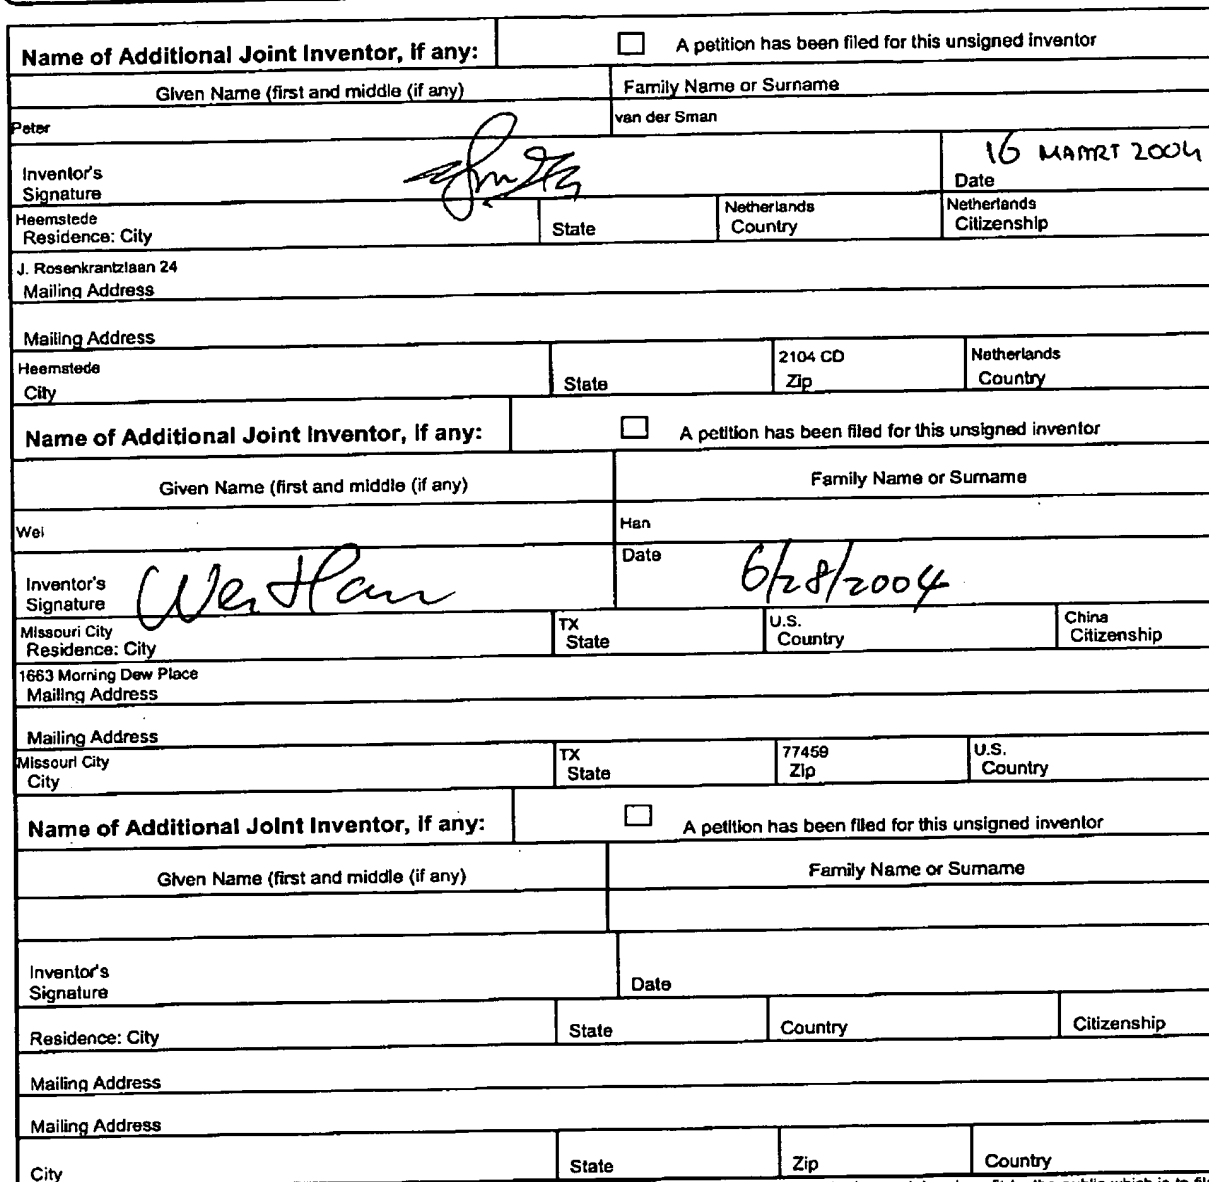 Name of Additional Joint Inventor, if any: A petition has been filed for this unsigned inventor
Given Name (first and middle (if any) Family Name or Surname
Peter van der Sman
16 MAART 2004
Inventor's
Signature Date
Heemstede Netherlands Netherlands
Residence: City State Country Citizenship
J. Rosenkrantzlaan 24
Mailing Address
Mailing Address
Heemstede 2104 CD Netherlands
City State Zip Country
Name of Additional Joint Inventor, if any: A petition has been filed for this unsigned inventor
Given Name (first and middle (if any) Family Name or Surname
Wei Han
Inventor's
Signature Wei Han Date 6/28/2004
Missouri City TX U.S. China
Residence: City State Country Citizenship
1663 Morning Dew Place
Mailing Address
Mailing Address
Missouri City TX 77459 U.S.
City State Zip Country
Name of Additional Joint Inventor, if any: A petition has been filed for this unsigned inventor
Given Name (first and middle (if any) Family Name or Surname
Inventor's
Signature Date
Residence: City State Country Citizenship
Mailing Address
Mailing Address
City State Zip Country